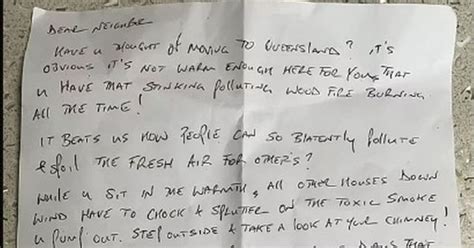 DEAR NEIGHBOR
HAVE U THOUGHT OF MOVING TO QUEENSLAND? IT'S
OBVIOUS IT'S NOT WARM ENOUGH HERE FOR YOU, THAT
U HAVE THAT STINKING POLLUTING WOOD FIRE BURNING
ALL THE TIME!
IT BEATS US HOW PEOPLE CAN SO BLATENTLY POLLUTE
& SPOIL THE FRESH AIR FOR OTHER'S?
WHILE U SIT IN THE WARMTH, ALL OTHER HOUSES DOWN
WIND HAVE TO CHOCK & SPLUTTER ON THE TOXIC SMOKE
U PUMP OUT. STEP OUTSIDE & TAKE A LOOK AT YOUR CHIMNEY!
DAYS THAT